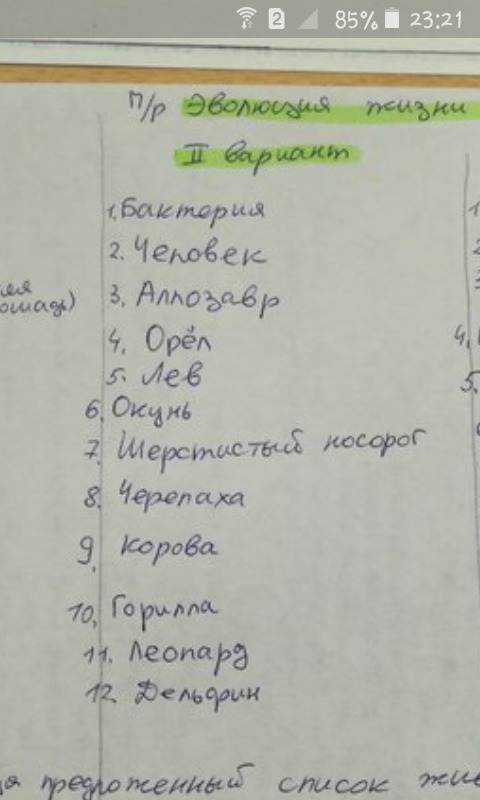 2 85% 23:21
П/р Эволюция жизни
II вариант
1. Бактерия
2. Человек
3. Аллозавр
4. Орёл
5. Лев
6. Окунь
7. Шерстистый носорог
8. Черепаха
9. Корова
10. Горилла
11. Леопард
12. Дельфин
4.
5.
предложенный список